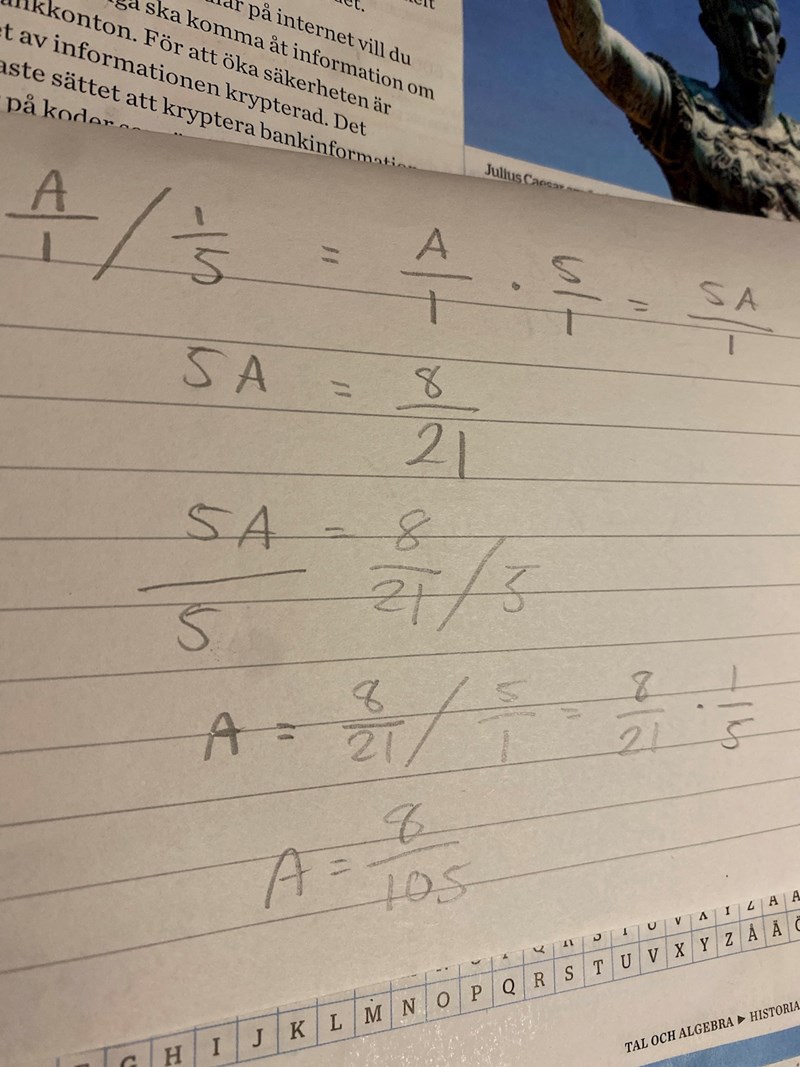 på internet vill du
ska komma åt information om
bankkonton. För att öka säkerheten är
av informationen krypterad. Det
sättet att kryptera bankinformation
på koder
Julius Caesar
A/1 / 1/5 = A/1 · 5/1 = 5A/1
5A = 8/21
5A/5 = 8/21 / 5
A = 8/21 / 5/1 = 8/21 · 1/5
A = 8/105
G H I J K L M N O P Q R S T U V X Y Z Å Ä Ö
TAL OCH ALGEBRA ▶ HISTORIA